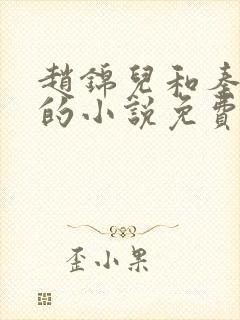 趙錦兒和秦
的小說免費
歪小果